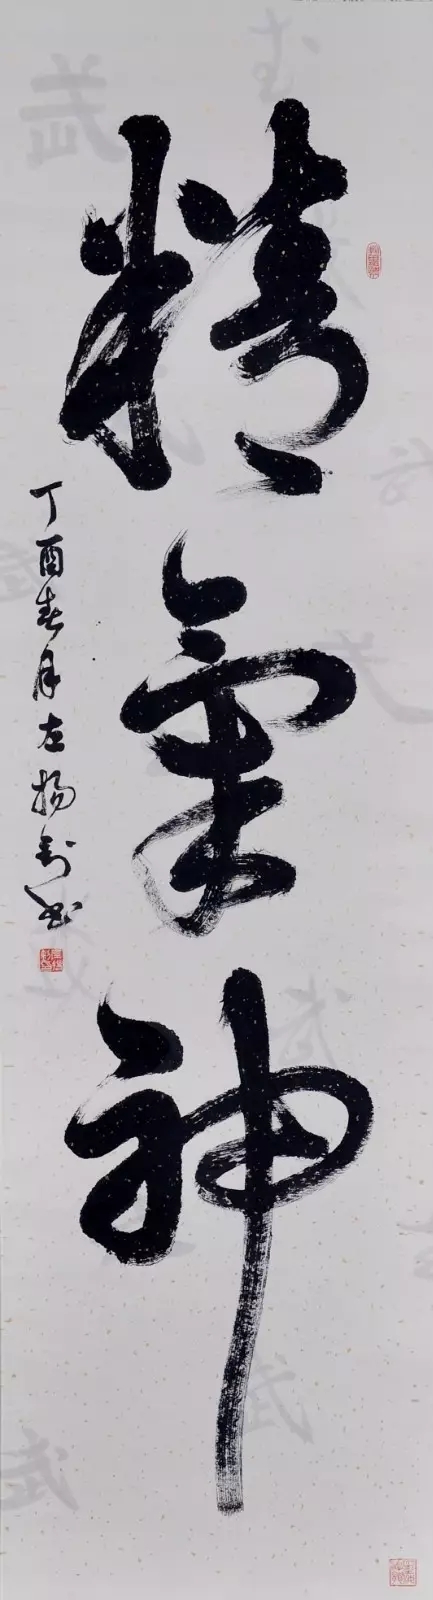 精氣神
丁酉春月左楊刻書